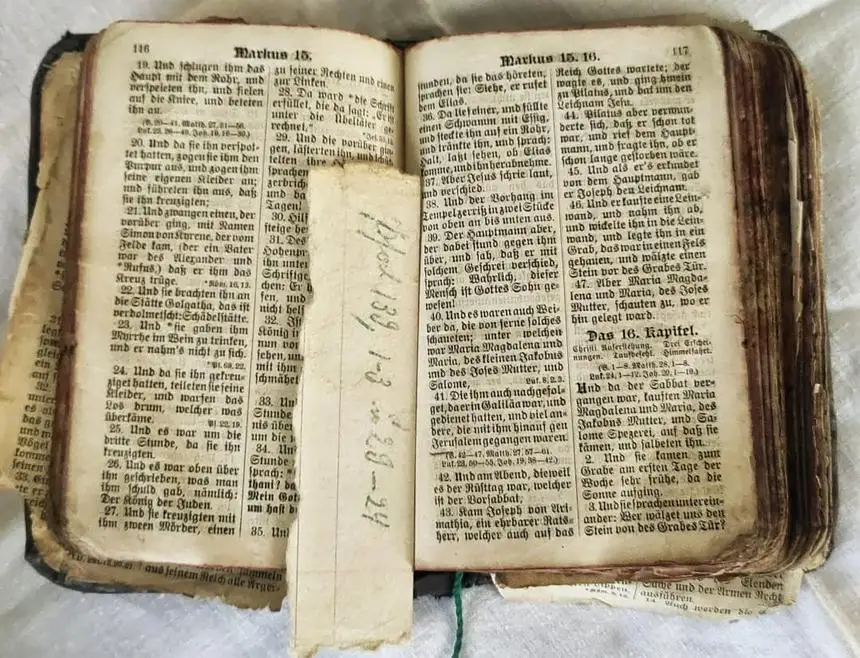 116
Markus 15.
19. Und schlugen ihm das
Haupt mit dem Rohr, und
verspeieten ihn, und fielen
auf die Kniee, und beteten
ihn an.
20. Und da sie ihn verspot-
tet hatten, zogen sie ihm den
Purpur aus, und zogen ihm
seine eigenen Kleider an;
und führeten ihn aus, daß
sie ihn kreuzigten;
21. Und zwangen einen, der
vorüber ging, mit Namen
Simon von Kyrene, der vom
Felde kam, (der ein Vater
war des Alexander und
*Rufus,) daß er ihm das
Kreuz trüge.
*Röm. 16, 13.
22. Und sie brachten ihn an
die Stätte Golgatha, das ist
verdolmetscht: Schädelstätte.
23. Und *sie gaben ihm
Myrrhe im Wein zu trinken,
und er nahm's nicht zu sich.
*Ps. 69, 22.
24. Und da sie ihn gekreu-
ziget hatten, teileten sie seine
Kleider, und warfen das
Los drum, welcher was
überkäme.
Ps. 22, 19.
25. Und es war um die
dritte Stunde, da sie ihn
kreuzigten.
26. Und es war oben über
ihn geschrieben, was man
ihm schuld gab, nämlich:
Der König der Juden.
27. Und sie kreuzigten mit
ihm zween Mörder, einen
zu seiner Rechten und einen
zur Linken.
28. Da ward *die Schrift
erfüllet, die da sagt: „Er ist
unter die Übeltäter ge-
rechnet."
29. Und die vorüber gin-
gen, lästerten ihn, und
telten ihre
sprachen
zerbrich
und
Tagen!
30. Hilf
steige
31. Des
Hohenpr
ihn unter
Schriftge
chen: Er
sen, und
nicht helf
32.
König
nun vo
sehen, un
mit ihm
schmähet
33. Und
Stunde
nis über
um die
34. Und
Stunde
sprach:
thani?
Mein Got
um hast
35. Und
1-3 u 23-24
Markus 15. 16.
117
stunden, da sie das höreten,
sprachen sie: Siehe, er rufet
dem Elias.
36. Da lief einer, und füllte
einen Schwamm mit Essig,
und steckte ihn auf ein Rohr,
und tränkte ihn, und sprach:
Halt, laßt sehen, ob Elias
komme, und ihn herabnehme.
37. Aber Jesus schrie laut,
und verschied.
38. Und der Vorhang im
Tempel zerriß in zwei Stücke
von oben an bis unten aus.
39. Der Hauptmann aber,
der dabei stund gegen ihm
über, und sah, daß er mit
solchem Geschrei verschied,
sprach: Wahrlich, dieser
Mensch ist Gottes Sohn ge-
wesen!
40. Und es waren auch Wei-
ber da, die von ferne solches
schaueten; unter welchen
war Maria Magdalena und
Maria, des kleinen Jakobus
und des Joses Mutter, und
Salome,
Luk. 8, 2. 3.
41. Die ihm auch nachgefol-
get, da er in Galiläa war, und
gedienet hatten, und viel an-
dere, die mit ihm hinauf gen
Jerusalem gegangen waren.
(B. 42—47. Matth. 27, 57—61.
Luk. 23, 50—55. Joh. 19, 38—42.)
42. Und am Abend, dieweil
es der Rüsttag war, welcher
ist der Vorsabbat,
43. Kam Joseph von Ari-
mathia, ein ehrbarer Rats-
herr, welcher auch auf das
Reich Gottes wartete; der
wagte es, und ging hinein
zu Pilatus, und bat um den
Leichnam Jesu.
44. Pilatus aber verwun-
derte sich, daß er schon tot
war, und rief dem Haupt-
mann, und fragte ihn, ob er
schon lange gestorben wäre.
45. Und als er's erkundet
von dem Hauptmann, gab
er Joseph den Leichnam.
46. Und er kaufte eine Lein-
wand, und nahm ihn ab,
und wickelte ihn in die Lein-
wand, und legte ihn in ein
Grab, das war in einen Fels
gehauen, und wälzte einen
Stein vor des Grabes Tür.
47. Aber Maria Magda-
lena und Maria, des Joses
Mutter, schauten zu, wo er
hin gelegt ward.
Das 16. Kapitel.
Christi Auferstehung. Drei Erschei-
nungen. Taufbefehl. Himmelfahrt.
(B. 1—8. Matth. 28, 1—8.
Luk. 24, 1—12. Joh. 20, 1—10.)
Und da der Sabbat ver-
gangen war, kauften Maria
Magdalena und Maria, des
Jakobus Mutter, und Sa-
lome Spezerei, auf daß sie
kämen, und salbeten ihn.
2. Und sie kamen zum
Grabe am ersten Tage der
Woche sehr frühe, da die
Sonne aufging.
3. Und sie sprachen unterein-
ander: Wer wälzet uns den
Stein von des Grabes Tür?
aus seinem Reich alle Ärger-
Sache und der Armen Recht
ausführen.
14. Auch werden die
Elenden